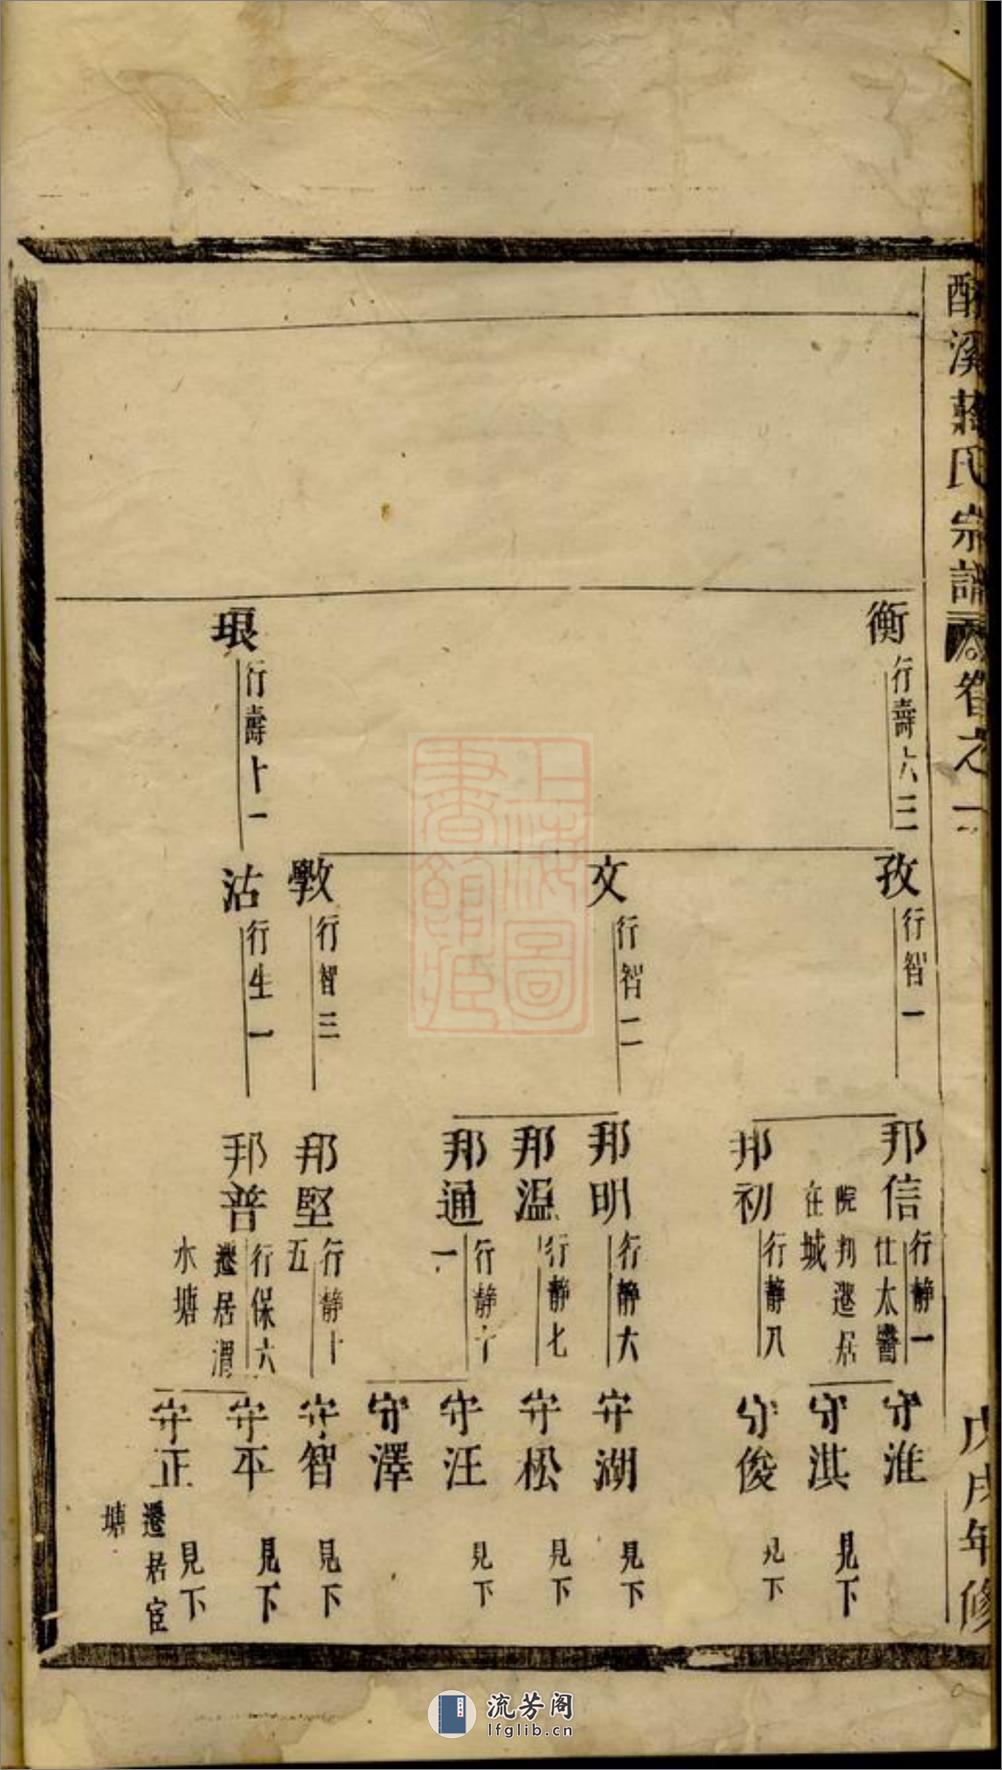 酥溪蔣氏宗譜
卷之一
戊戌年修
衡
行壽六三
琅
行壽十一
孜
行智一
文
行智二
斆
行智三
沾
行生一
邦信
行靜一
仕太醫
院判遷居
在城
邦初
行靜八
邦明
行靜六
邦溫
行靜七
邦通
行靜十
一
邦堅
行靜十
五
邦普
行保六
遷居湄
水塘
守淮
守淇
見下
守俊
見下
守湖
見下
守松
見下
守汪
見下
守澤
守智
見下
守平
見下
守正
見下
遷居宦
塘
上海圖
書館藏
流芳阁
lfglib.cn